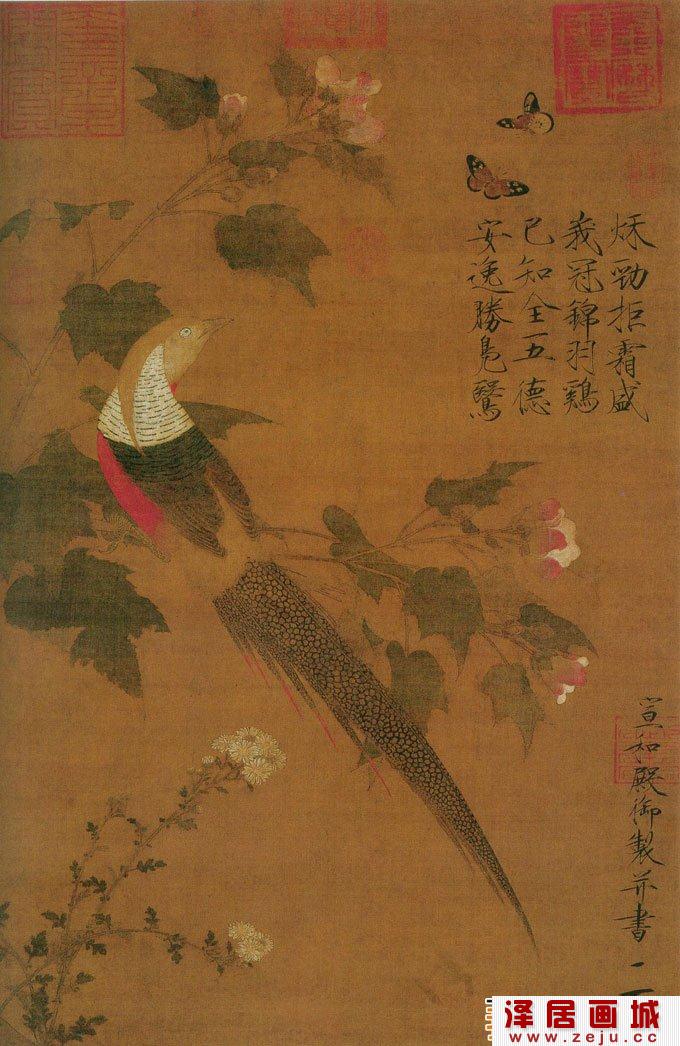 秋勁拒霜盛
峩冠錦羽鷄
已知全五德
安逸勝鳧鷖
宣和殿御製并書
泽居画城
www.zeju.cc